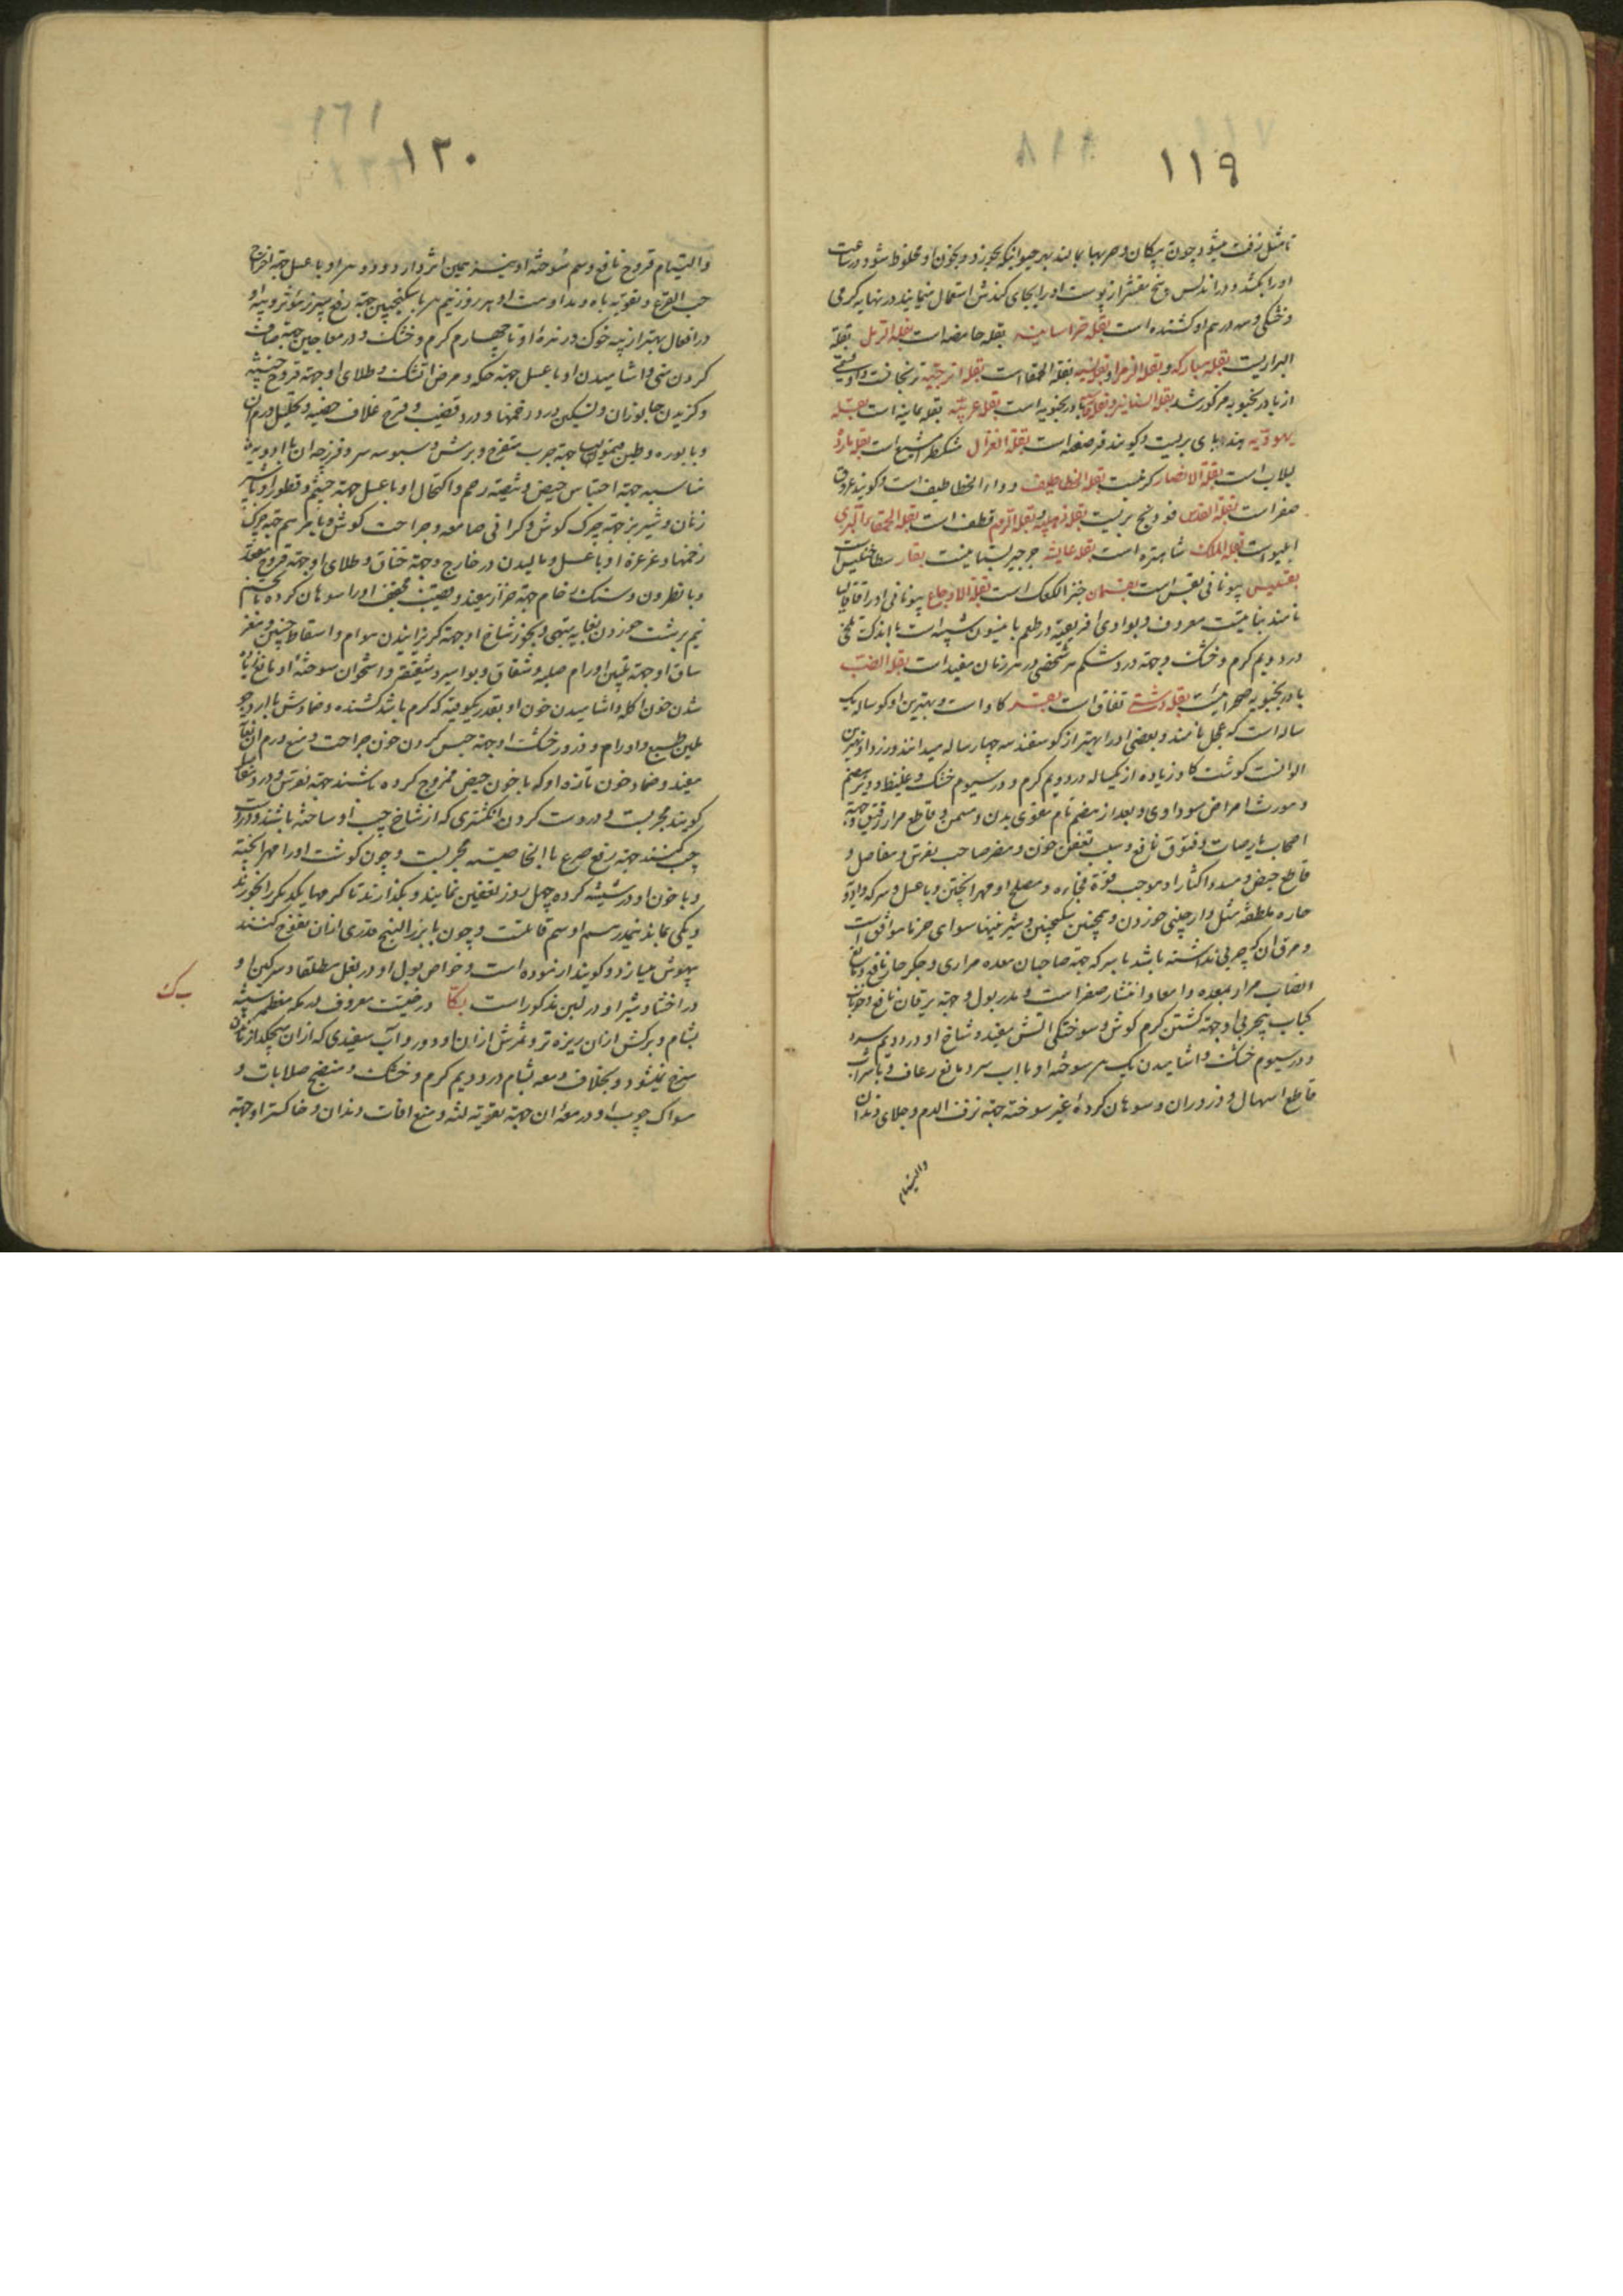 ۱۱۹
تا مثل زفت میشود چون بر پیکان و حربها بمالند بهر حیوانیکه بخورد و بخون او مخلوط شود در ساعت
او را بکشد و در اندلس و بیخ مقشر از پوست او را بجای کندش استعمال مینمایند در نهایه گرمی
و خشکی و سه درهم او کشنده است بقله خراسانیه بقله حامضه است بقله الرمل بقله
البراریست بقله مبارکه و بقله الزهرا و بقله لینه بقله الحمقا است بقله اترجیه
از بادرنجبویه مذکور شد بادرنجبویه است بقله عربیه بقله یمانیه است بقله
یهودیه هندبای بریست و گویند قرصعنه است بقله الغزال مشکطرامشیع است بقله بارده
لبلاب است بقله الانصار کرنبست بقله الخطاطیف دواء الخطاطیف است و گویند عروق
صفر است بقله العدس فودنج بریست بقله ذهبیه قطف است بقله الحمقاء البری
است بقله الملک شاهتره است بقله عایشه جرجیر بستانیست بقار
بقسیس بیونانی بقس است بقسمان خبز الکعک است بقله الاوجاع بیونانی او را
نامند نباتیست معروف و بوادی افریقیه و در طعم بانیسون شبیه است با اندک تلخی
در دویم گرم و خشک و جهة درد شکم هر شخصی در هر زمان مفید است بقله الضب
بادرنجبویه صحرائیست بقله دشتی تفاف است بقر گاو است و بهترین او گوساله یک
ساله است که عجل نامند و بعضی او را بهتر از گوسفند سه چهار ساله میدانند و زرد او بهترین
الوانست گوشت گاو زیاده از یکساله در دویم گرم و در سیوم خشک و غلیظ و دیر هضم
و مورث امراض سوداوی و بعد از هضم تام مقوی بدن و مسمن و قاطع مرار رقیق و جهة
اصحاب ریاضات و فتوق نافع و سبب تعفن خون و مضر صاحب نقرس و مفاصل و
قاطع حیض و مسدد و اکثار او موجب فجاءه و مصلح او مهرا پختن و با عسل و سرکه و ادویه
حاره ملطفه مثل دارچینی خوردن و همچنین سکنجبین و شیرینیها سوای خرما موافق است
و مرق آن که چربی نداشته باشد با سرکه جهة صاحبان معده مراری و جگر حار نافع و مانع
انصباب مرار بمعده و امعا و انتشار صفراست و مدر بول و جهة یرقان نافع
کباب بیچربی او جهة کشتن کرم گوش و سوختگی آتش مفید و شاخ او در دویم سرد
و در سیوم خشک و آشامیدن یک سر سوخته او با آب سرد مانع رعاف و با شراب
قاطع اسهال و ذرور آن و سوهان کردهٔ غیر سوخته جهة نزف الدم و جلای دندان
والتیام
۱۲۰
والتیام قروح نافع و سم سوخته او نیز همین اثر دارد و دو سر او با عسل جهة اخراج
حب القرع و تقویة باه و مداومت او هر روز نیم سر با سکنجبین جهة رفع سپرز مؤثر و پیه او
در افعال بهتر از پیه خوک و زهرهٔ او تا چهارم گرم و خشک و در معاجین جهة صاف
کردن منی و آشامیدن او با عسل جهة حکه و مرض آتشک و طلای او جهة قروح خبیثه
و گزیدن جانوران و تسکین درد زخمها و درد قضیب و قرح غلاف خصیه و تحلیل ورم آن
و با بوره و طین قیمولیا جهة جرب متقرح و برش و سبوسه سر و فرزجه آن با ادویه
مناسبه جهة احتباس حیض و تنقیه رحم و اکتحال او با عسل جهة چشم و قطور او با شیر
زنان و شیر بز جهة چرک گوش و گرانی سامعه و جراحت گوش و با مرهم جهة چرک
زخمها و غرغرهٔ او با عسل و مالیدن در خارج و جهة خناق و طلای او جهة قروح مقعد
و با نطرون و سنک رخام جهة حزاز مفید و قضیب مجفف او را سوهان کرده با تخم
نیم برشت خوردن بغایه مبهی و بخور شاخ او جهة گریزانیدن هوام و اسقاط جنین و مغز
ساق او جهة تلیین اورام صلبه و شقاق و بواسیر و متقعر و استخوان سوخته او مانع
شدن خون اکله و آشامیدن خون او بقدر یکوقیه که گرم باشد کشنده و ضمادش با آرد جو
ملین طبع و اورام و ذرور خشک او جهة حبس کردن خون جراحت و منع ورم آن بغایه
مفید و ضماد خون تازه او که با خون حیض ممزوج کرده باشند جهة نقرس و درد مفاصل
گویند مجربست و در دست کردن انگشتری که از شاخ چپ او ساخته باشند و در دست
چپ کنند جهة رفع صرع بالخاصیه مجربست و چون گوشت او را مهرا پخته
و با خون او در شیشه کرده چهل روز تعفین نمایند و بگذارند تا کرمها یکدیگر را بخورند
و یکی بماند نیمدرهم او سم قاتلست و چون با بزرالبنج قدری از آن نفوخ کنند
بیهوش میسازد و گویند آزموده است و خواص بول او در بغل مطلقا و سرگین او
در اخثا و شیر او در لبن مذکور است بکا درختیست معروف در مکه معظمه شبیه
بشام و برگش از آن ریزه تر و ثمرش از آن و دور و آب سفیدی که از آن میچکد
سرخ نمیشود و بخلاف دمعه بشام در دویم گرم و خشک و منضج صلابات و
سواک چوب او و دمعهٔ آن جهة تقویة لثه و منع آفات دندان و خاکستر او جهة
ب ک